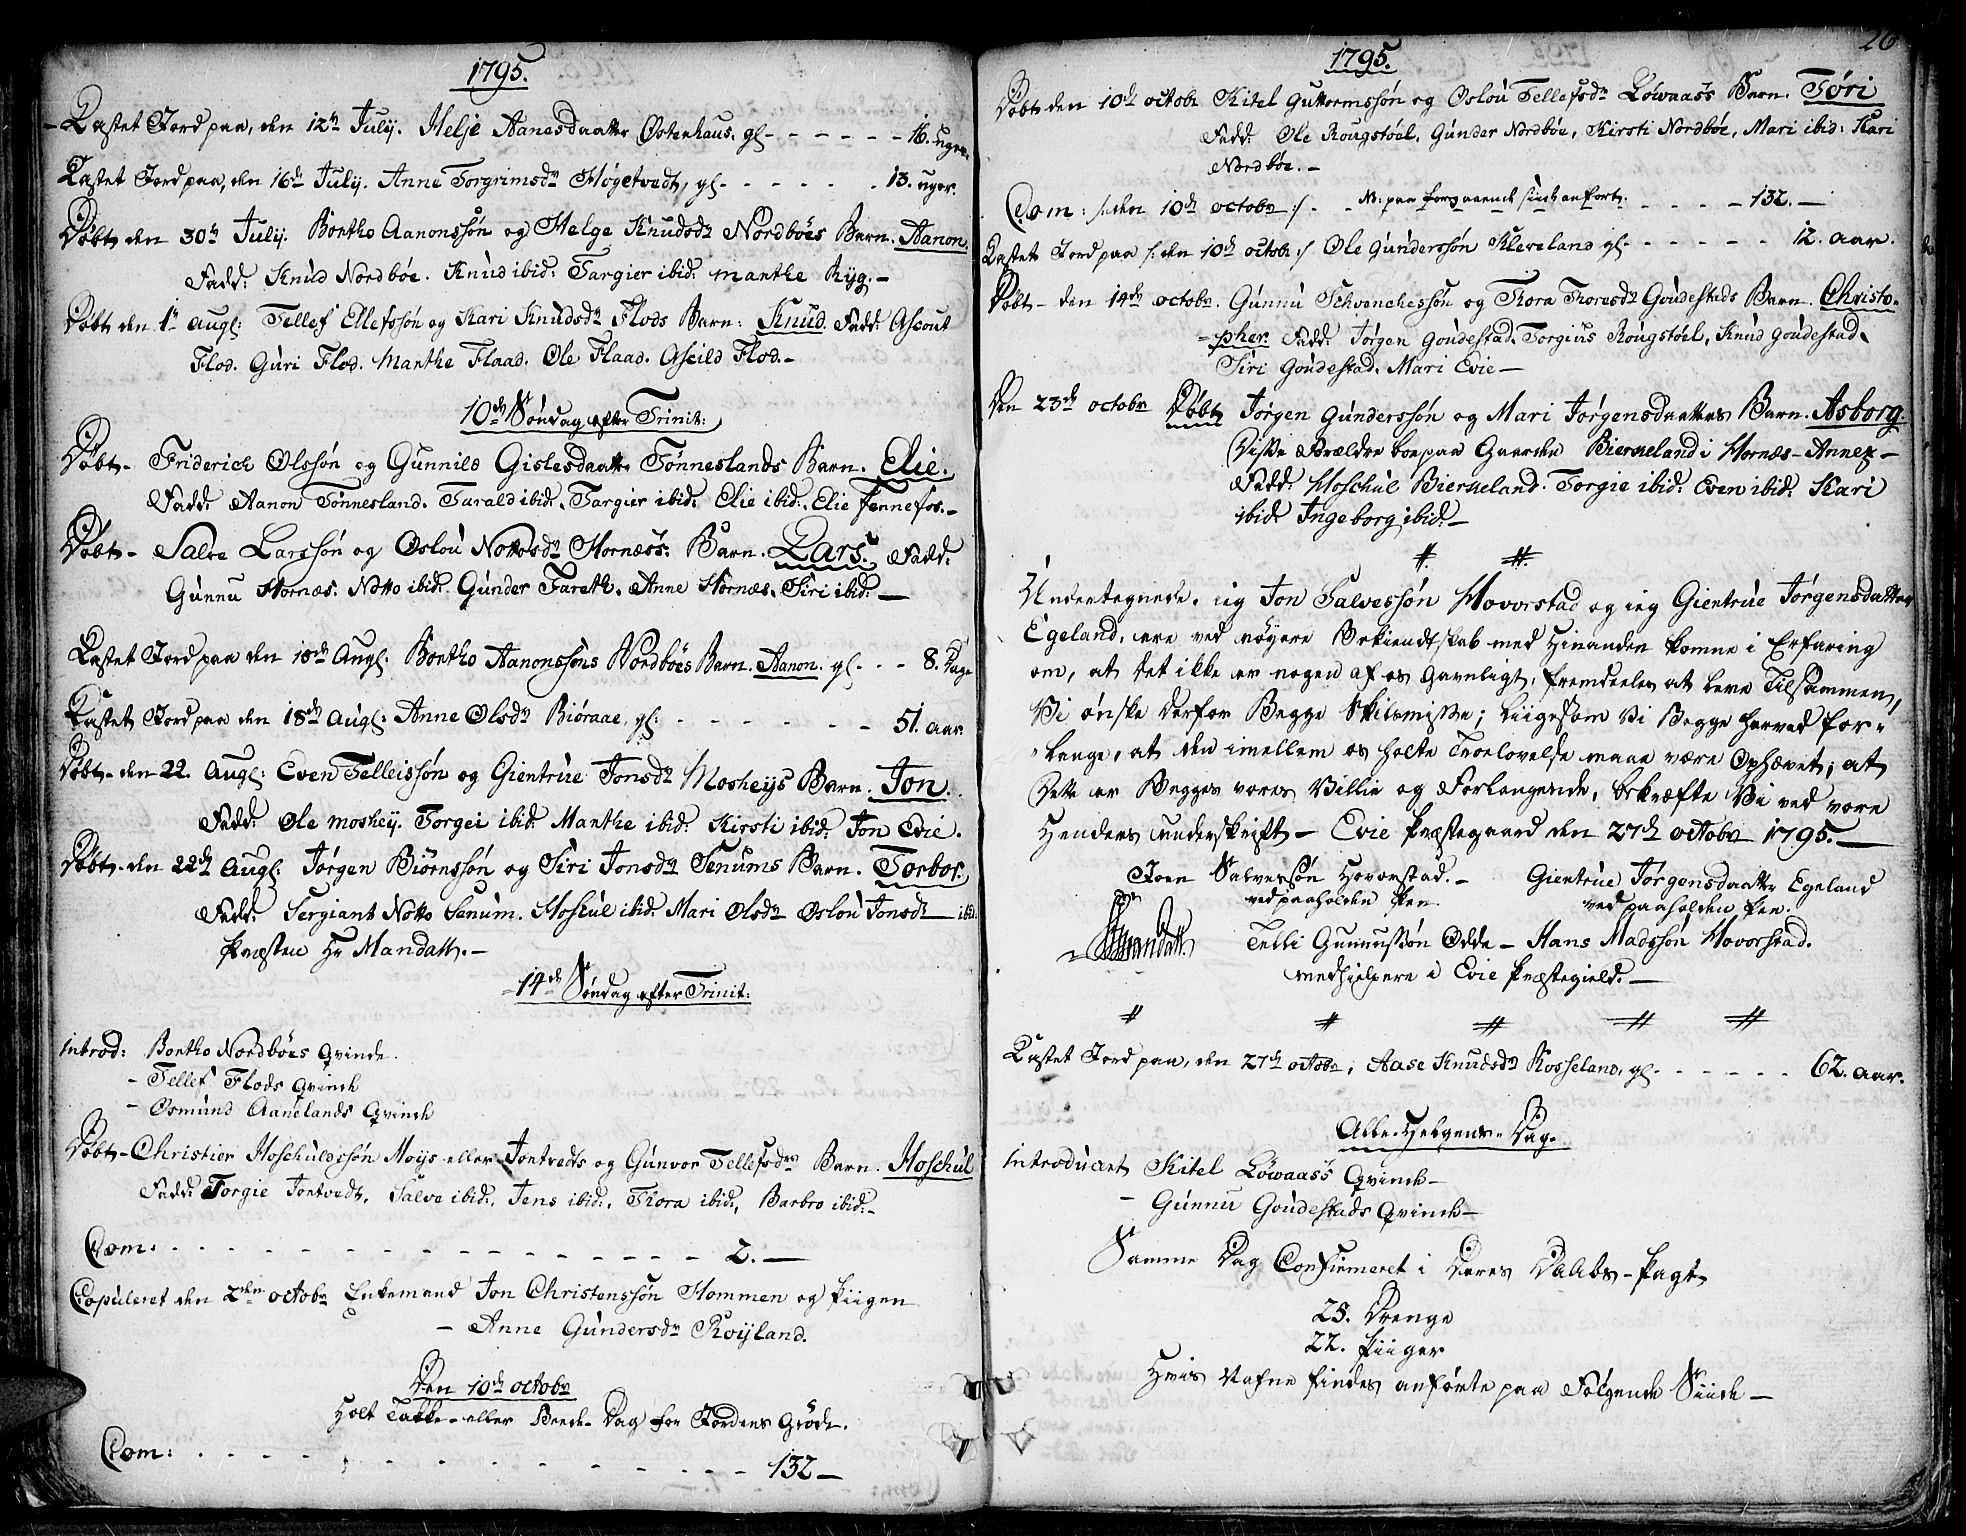 1795.
Kastet Jord paa, den 12te July. Helje Aanesdaatter Østenhaus. gl. - - - - - - 16. uger.
Kastet Jord paa, den 16de July. Anne Torgrimsdr Høgetvedt, gl. - - - - - 13. uger.
Døbt den 30te July. Bertho Aanonssøn og Helge Knudsdr Nordbøes Barn. Aanon.
Fadd: Knud Nordbøe. Knud ibid: Targier ibid: Marthe Ryg. -
Døbt den 1te Augl: Tellef Ellefssøn og Kari Knudsdr Flods Barn: Knud. Fadd: Ascout
Flod. Guri Flod. Marthe Flaad. Ole Flaad. Aseild Flod. -
10de Søndag efter Trinit:
Døbt - Friderich Olssøn og Gunnild Gislesdaatter Tønneslands Barn. Elie.
Fadd: Aanon Tønnesland. Tarald ibid. Targier ibid: Elie ibid: Elie Fennefos. -
Døbt - Salve Larssøn og Oslou Nottosdr Hornæss: Barn. Lars. Fadd:
Gunnu Hornæs. Notto ibid: Gunder Fareth. Anne Hornæs. Siri ibid: -
Kastet Jord paa den 18de Augl: Bertho Aanonssøns Nordbøes Barn. Aanon. gl. - - - 8. Dage
Kastet Jord paa den 18de Augl: Anne Olsdr Biøraae, gl: - - - - - - - 51. aar.
Døbt - den 22. Augl: Even Telleissøn og Gientrue Jonsdr Mosheys Barn. Jon.
Fadd: Ole Moshey. Torgei ibid: Marthe ibid: Kirsti ibid: Jon Evie.
Døbt - den 22de Augl: Jørgen Biørnssøn og Siri Jonsdr Senums Barn. Torbor.
Fadd: Sergiant Notto Senum. Hoskul ibid: Mari Olsdr Oslou Jonsdr - ibid.
Præsten Hr Mandall. -
14de Søndag efter Trinit:
Introd: Bertho Nordbøes Qvinde.
- Tellef Flods Qvinde
- Osmund Aanelands Qvinde
Døbt - Christier Hoschuldssøn Moys eller Jontvedts og Gunvor Tellefsdr Barn. Hoschul
Fadd: Torgie Jontvedt. Salve ibid:. Jens ibid:. Thora ibid:, Barbro ibid: -
Com: - - - - - - - - - 2. -
Copuleret den 2den octobr Enkemand Jon Christenssøn Hommen og Piigen
- Anne Gundersdr Røyland.
Den 10de octobr
Holt Takke- eller Beede-Dag for Jordens Grøde.
Com: - - - - - - - - - 132 -
1795.
26
Døbt den 10de octobr Kitel Guttormssøn og Oslou Tellefsdr Løwaas's Barn. Tøri
Fadd: Ole Rougstøel, Gunder Nordbøe, Kirsti Nordbøe, Mari ibid: Kari
Nordbøe. -
Com: /: den 10de octobr :/ - - NB: paa forgaaende Siide anført. - - - - - 132. -
Kastet Jord paa /: den 10de octobr :/ Ole Gunderssøn Kleveland gl. - - - - - - 12. aar.
Døbt - den 14de octobr. Gunnu Schvenchessøn og Thora Thoresdr Goudestads Barn. Christo-
pher. Fadd: Jørgen Goudestad. Torgius Rougstøel, Knud Goudestad.
Siri Goudestad. Mari Evie -
Den 23de octobr Døbt Jørgen Gunderssøn og Mari Jørgensdaatters Barn. Asborg
Disse Forældre boe paa Gaarden Bierneland i Hornæs-Annex -
Fadd: Hoschul Bierneland. Torgie ibid: Even ibid: Kari
ibid: Ingeborg ibid: -
Undertegnede. iig Jon Salvessøn Hovorstad og ieg Gientrue Jørgensdatter
Egeland, ere ved nøyere Bekiendtskab med Hinanden komne i Erfaring
om, at det ikke er nogen af os gavnligt, fremdeeles at leve Tilsammen,
Vi ønske derfor Begge Skilsmisse; Liigesom Vi Begge herved for-
lange, at den imellem os holte Troelovelse maae være Ophævet; at
Dette er Begges vores Villie og Forlangende, bekræfte Vi ved vore
Henders underskrift - Evie Præstegaard den 27de octobr 1795. -
Joen Salvessøn Hovorstad. - Gientrue Jørgensdaatter Egeland
ved paaholden Pen. ved paaholden Pen.
Mandall. Telli Gunnussøn Odde - Hans Madssøn Hovorstad.
Medhielpere i Evie Præstegield. -
Kastet Jord paa, den 27de octobr, Aase Knudsdr Rosseland, gl. - - - - - - 62. aar.
Alle-Helgens-Dag.
Introduceret Kitel Løwaas's Qvinde -
- Gunnu Goudestads Qvinde -
Samme Dag Confirmeret i Deres Daabs-Pagt
25. Drenge
22. Piiger
Hvis Nafne findes anførte paa Følgende Siide -